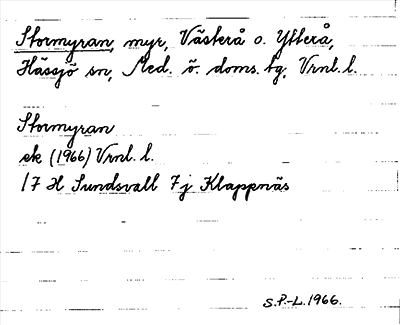 Stormyran, myr, Västerå o. Ytterå,
Hässjö sn, Med. ö. doms. tg, Vrnl. l.
Stormyran
ek (1966) Vrnl. l.
17 H Sundsvall 7j Klappnäs
S.P.-L. 1966.